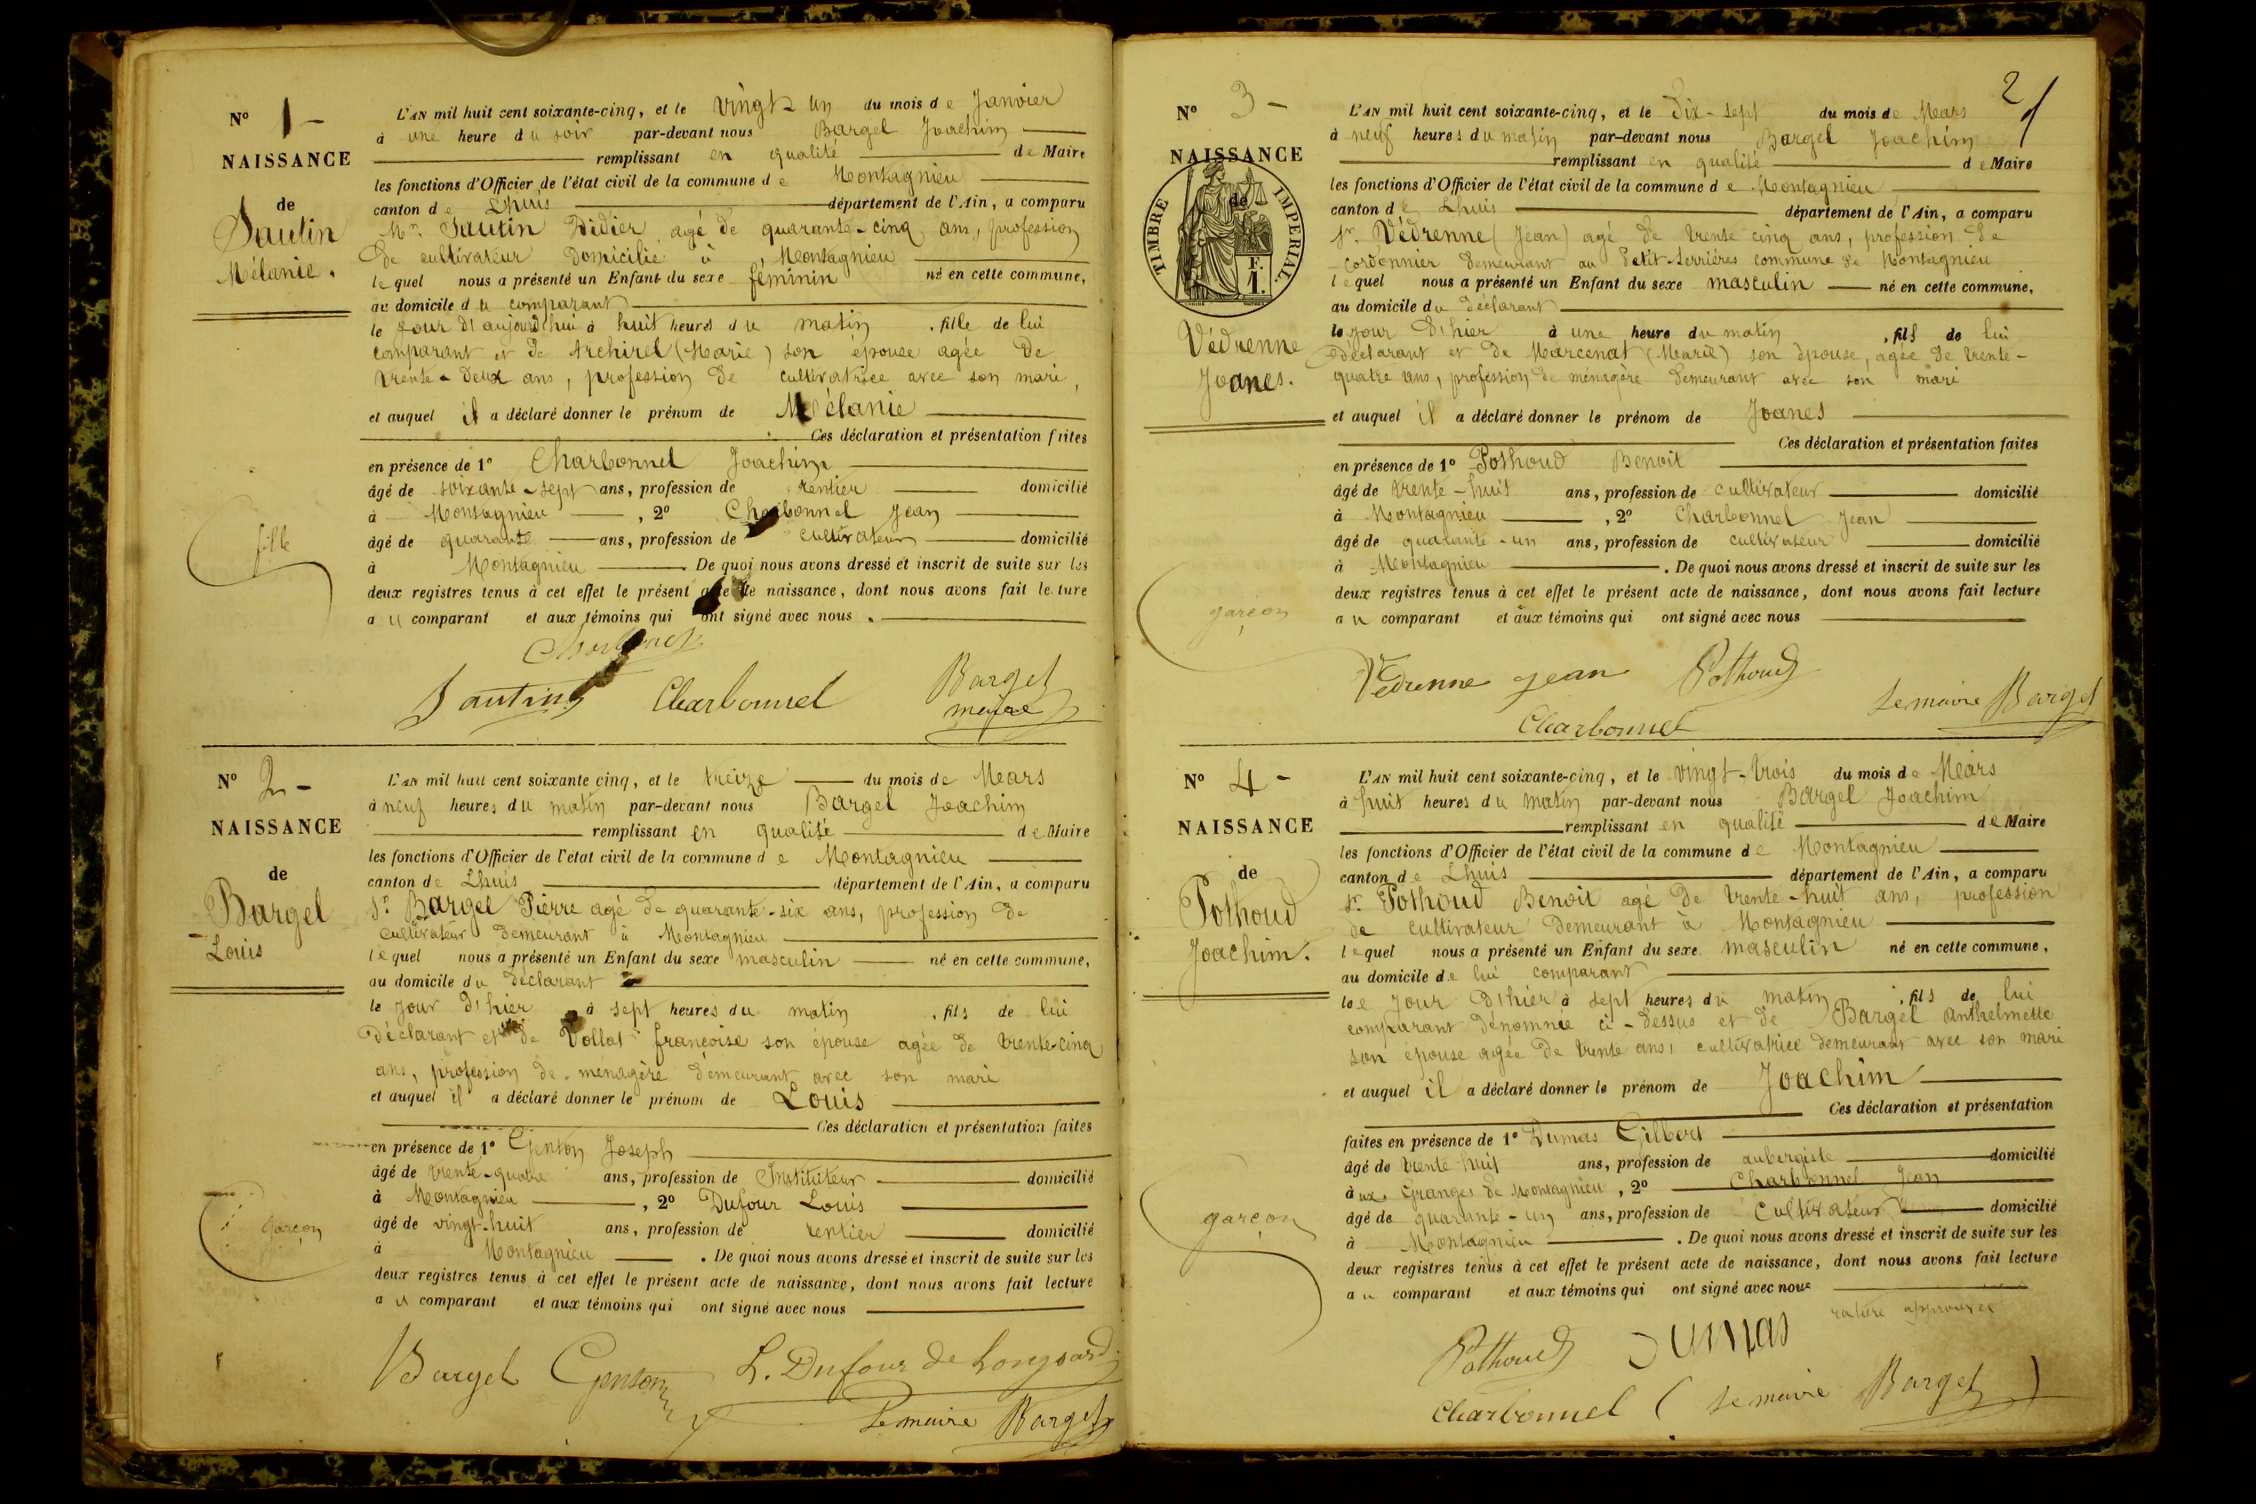 N° 1 -
NAISSANCE
de
Sautin
Mélanie.
L'AN mil huit cent soixante-cinq, et le vingt un du mois de Janvier
à une heure du soir par-devant nous Bargel Joachim
remplissant en qualité de Maire
les fonctions d'Officier de l'état civil de la commune de Montagnieu
canton de Lhuis département de l'Ain, a comparu
Mr Sautin Didier agé de quarante-cinq ans, profession
de cultivateur domicilié à Montagnieu
lequel nous a présenté un Enfant du sexe féminin né en cette commune,
au domicile du comparant
le jour d'aujourd'hui à huit heures du matin, fille de lui
comparant et de Archirel (Marie) son épouse agée de
trente-deux ans, profession de cultivatrice avec son mari,
et auquel il a déclaré donner le prénom de Mélanie
Ces déclaration et présentation faites
en présence de 1° Charbonnel Joachim
âgé de soixante-sept ans, profession de rentier domicilié
à Montagnieu, 2° Charbonnel Jean
âgé de quarante ans, profession de cultivateur domicilié
à Montagnieu. De quoi nous avons dressé et inscrit de suite sur les
deux registres tenus à cet effet le présent acte de naissance, dont nous avons fait lecture
au comparant et aux témoins qui ont signé avec nous.
fille
Charbonnel
Sautin Charbonnel Bargel
maire
N° 2 -
NAISSANCE
de
Bargel
Louis
L'AN mil huit cent soixante cinq, et le treize du mois de Mars
à neuf heures du matin par-devant nous Bargel Joachim
remplissant en qualité de Maire
les fonctions d'Officier de l'état civil de la commune de Montagnieu
canton de Lhuis département de l'Ain, a comparu
Sr Bargel Pierre agé de quarante-six ans, profession de
cultivateur demeurant à Montagnieu
lequel nous a présenté un Enfant du sexe masculin né en cette commune,
au domicile du déclarant
le jour d'hier à sept heures du matin, fils de lui
déclarant et de Vollat françoise son épouse agée de trente-cinq
ans, profession de menagère demeurant avec son mari
et auquel il a déclaré donner le prénom de Louis
Ces déclaration et présentation faites
en présence de 1° Genton Joseph
âgé de trente-quatre ans, profession de Instituteur domicilié
à Montagnieu, 2° Dufour Louis
âgé de vingt-huit ans, profession de rentier domicilié
à Montagnieu. De quoi nous avons dressé et inscrit de suite sur les
deux registres tenus à cet effet le présent acte de naissance, dont nous avons fait lecture
au comparant et aux témoins qui ont signé avec nous
garçon
Bargel Genton L. Dufour de
Le maire Bargel
2
N° 3 -
NAISSANCE
de
TIMBRE IMPERIAL.
1 F.
Védrenne
Joanes.
L'AN mil huit cent soixante-cinq, et le Dix-sept du mois de Mars
à neuf heures du matin par-devant nous Bargel Joachim
remplissant en qualité de Maire
les fonctions d'Officier de l'état civil de la commune de Montagnieu
canton de Lhuis département de l'Ain, a comparu
Sr. Védrenne (Jean) agé de trente cinq ans, profession de
cordonnier demeurant au Petit-Serrières commune de Montagnieu
lequel nous a présenté un Enfant du sexe masculin né en cette commune,
au domicile du déclarant
le jour d'hier à une heure du matin, fils de lui
déclarant et de Marcenat (Marie) son épouse, agée de trente-
quatre ans, profession de ménagère demeurant avec son mari
et auquel il a déclaré donner le prénom de Joanes
Ces déclaration et présentation faites
en présence de 1° Pothoud Benoit
âgé de trente-huit ans, profession de cultivateur domicilié
à Montagnieu, 2° Charbonnel Jean
âgé de quarante-un ans, profession de cultivateur domicilié
à Montagnieu. De quoi nous avons dressé et inscrit de suite sur les
deux registres tenus à cet effet le présent acte de naissance, dont nous avons fait lecture
au comparant et aux témoins qui ont signé avec nous
garçon
Védrenne jean Pothoud
Charbonnel Le maire Bargel
N° 4 -
NAISSANCE
de
Pothoud
Joachim.
L'AN mil huit cent soixante-cinq, et le vingt-trois du mois de Mars
à huit heures du matin par-devant nous Bargel Joachim
remplissant en qualité de Maire
les fonctions d'Officier de l'état civil de la commune de Montagnieu
canton de Lhuis département de l'Ain, a comparu
Sr Pothoud Benoit agé de trente-huit ans, profession
de cultivateur demeurant à Montagnieu
lequel nous a présenté un Enfant du sexe masculin né en cette commune,
au domicile de lui comparant
le jour d'hier à sept heures du matin, fils de lui
comparant dénommé ci-dessus et de Bargel anthelmette
son épouse agée de trente ans, cultivatrice demeurant avec son mari
et auquel il a déclaré donner le prénom de Joachim
Ces déclaration et présentation
faites en présence de 1° Dumas Gilbert
âgé de trente-huit ans, profession de aubergiste domicilié
aux Granges de Montagnieu, 2° Charbonnel Jean
âgé de quarante-un ans, profession de cultivateur domicilié
à Montagnieu. De quoi nous avons dressé et inscrit de suite sur les
deux registres tenus à cet effet le présent acte de naissance, dont nous avons fait lecture
au comparant et aux témoins qui ont signé avec nous
rature approuvée
garçon
Pothoud Dumas
Charbonnel (Le maire Bargel)